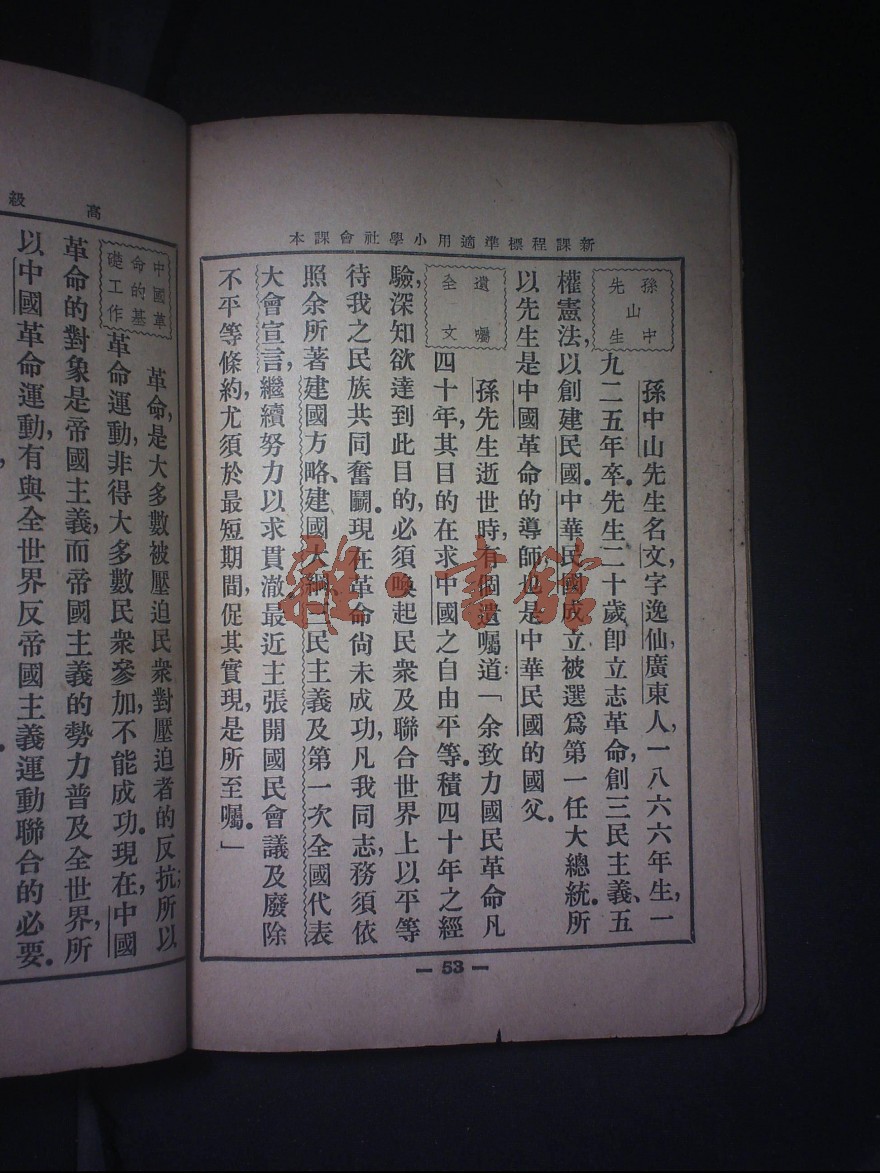 新課程標準適用小學社會課本
孫中山先生
孫中山先生名文,字逸仙,廣東人,一八六六年生,一
九二五年卒。先生二十歲卽立志革命,創三民主義、五
權憲法,以創建民國。中華民國成立被選爲第一任大總統。所
以先生是中國革命的導師也是中華民國的國父。
遺囑全文
孫先生逝世時,有個遺囑道:「余致力國民革命凡
四十年,其目的在求中國之自由平等。積四十年之經
驗,深知欲達到此目的,必須喚起民衆及聯合世界上以平等
待我之民族共同奮鬭。現在革命尙未成功,凡我同志,務須依
照余所著建國方略、建國大綱、三民主義及第一次全國代表
大會宣言,繼續努力以求貫澈。最近主張開國民會議及廢除
不平等條約,尤須於最短期間,促其實現,是所至囑。」
— 53 —
高級
中國革命的基礎工作
革命,是大多數被壓迫民衆對壓迫者的反抗;所以
革命運動,非得大多數民衆參加,不能成功。現在,中國
革命的對象是帝國主義,而帝國主義的勢力普及全世界,所
以中國革命運動,有與全世界反帝國主義運動聯合的必要。
雜·書館